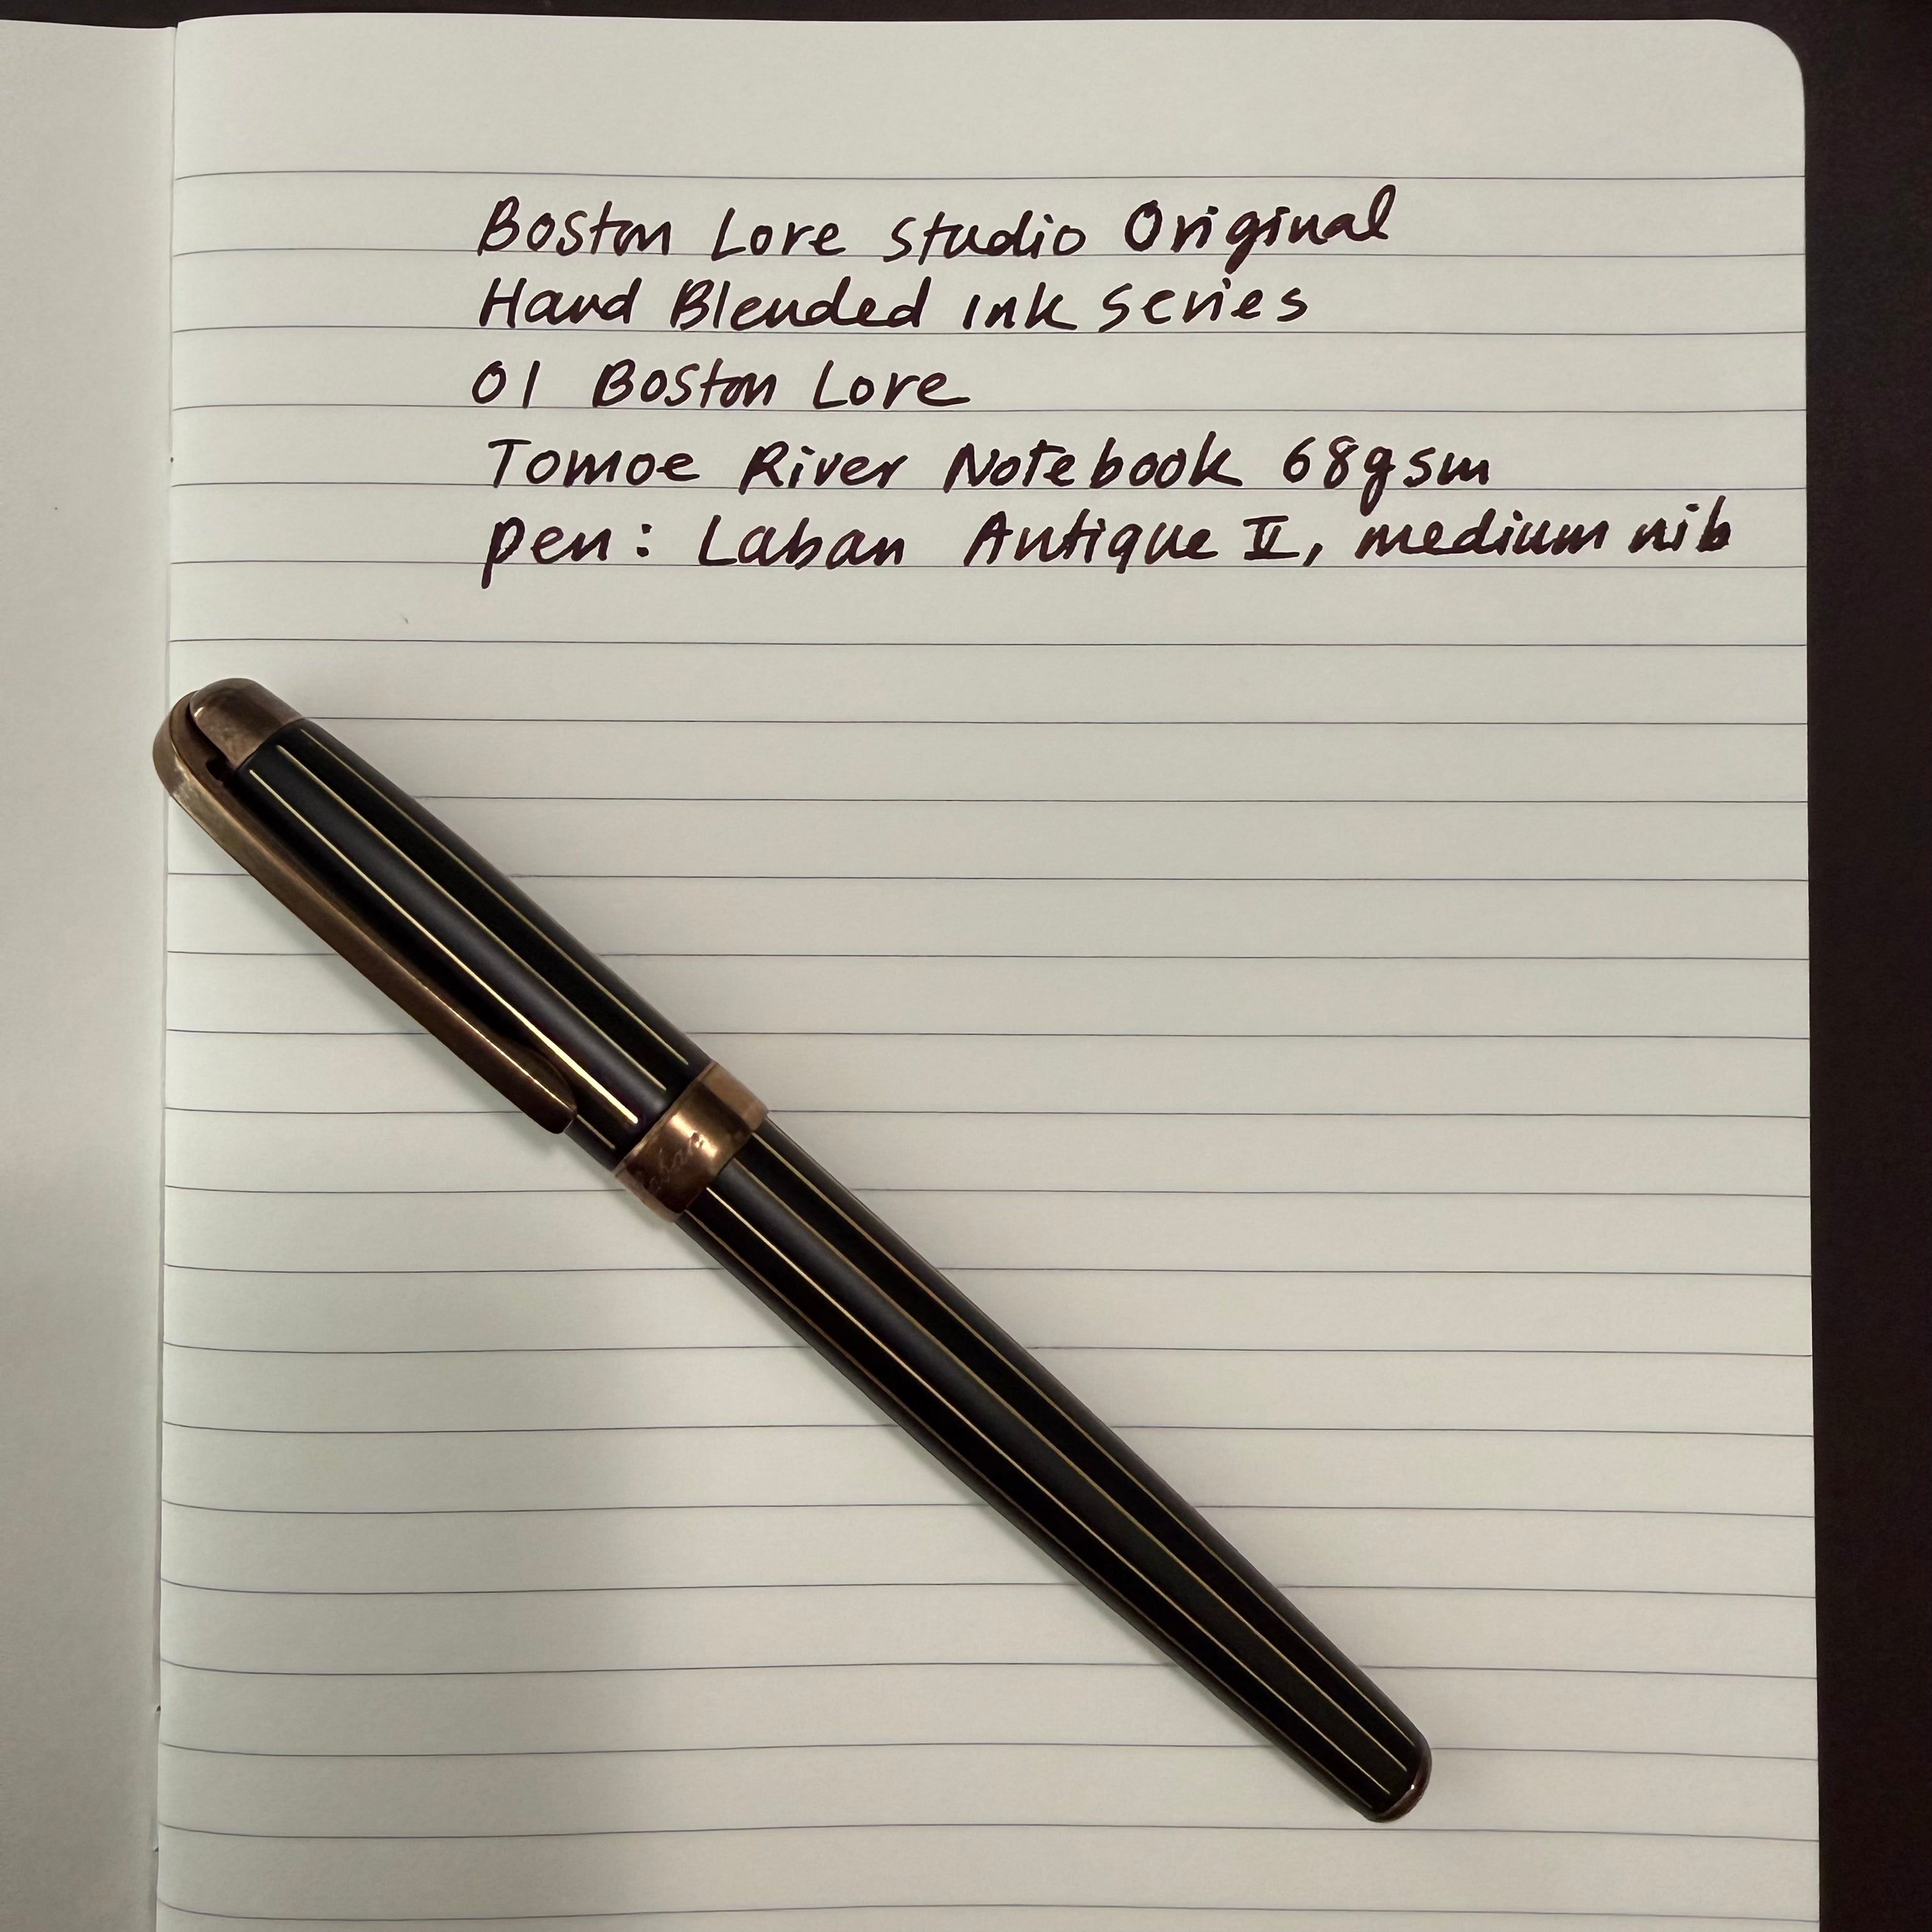 Boston Lore Studio Original
Hand Blended Ink Series
01 Boston Lore
Tomoe River Notebook 68gsm
pen: Laban Antique II, medium nib
Laban